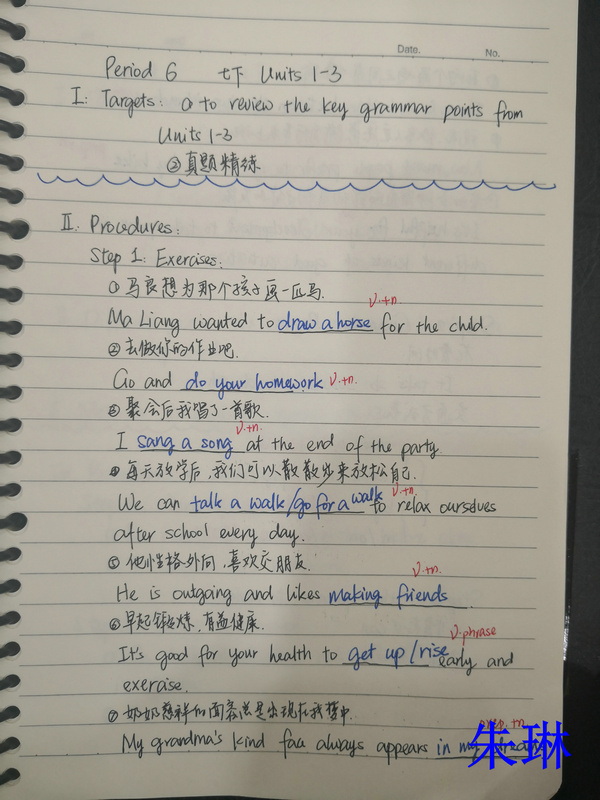 Date. No.
Period 6 七下 Units 1-3
I: Targets: ① to review the key grammar points from
Units 1-3
② 真题精练
II. Procedures:
Step 1: Exercises:
① 马良想为那个孩子画一匹马.
v.+n
Ma Liang wanted to draw a horse for the child.
② 去做你的作业吧.
Go and do your homework v.+n.
③ 聚会后我唱了一首歌.
v.+n.
I sang a song at the end of the party.
④ 每天放学后, 我们可以散散步来放松自己.
We can talk a walk/go for a walk v.+n. to relax ourselves
after school every day.
⑤ 他性格外向, 喜欢交朋友.
v.+n.
He is outgoing and likes making friends.
⑥ 早起锻炼, 有益健康.
v.phrase
It's good for your health to get up/rise early and
exercise.
⑦ 奶奶慈祥的面容总是出现在我梦中.
My grandma's kind face always appears in my
朱琳